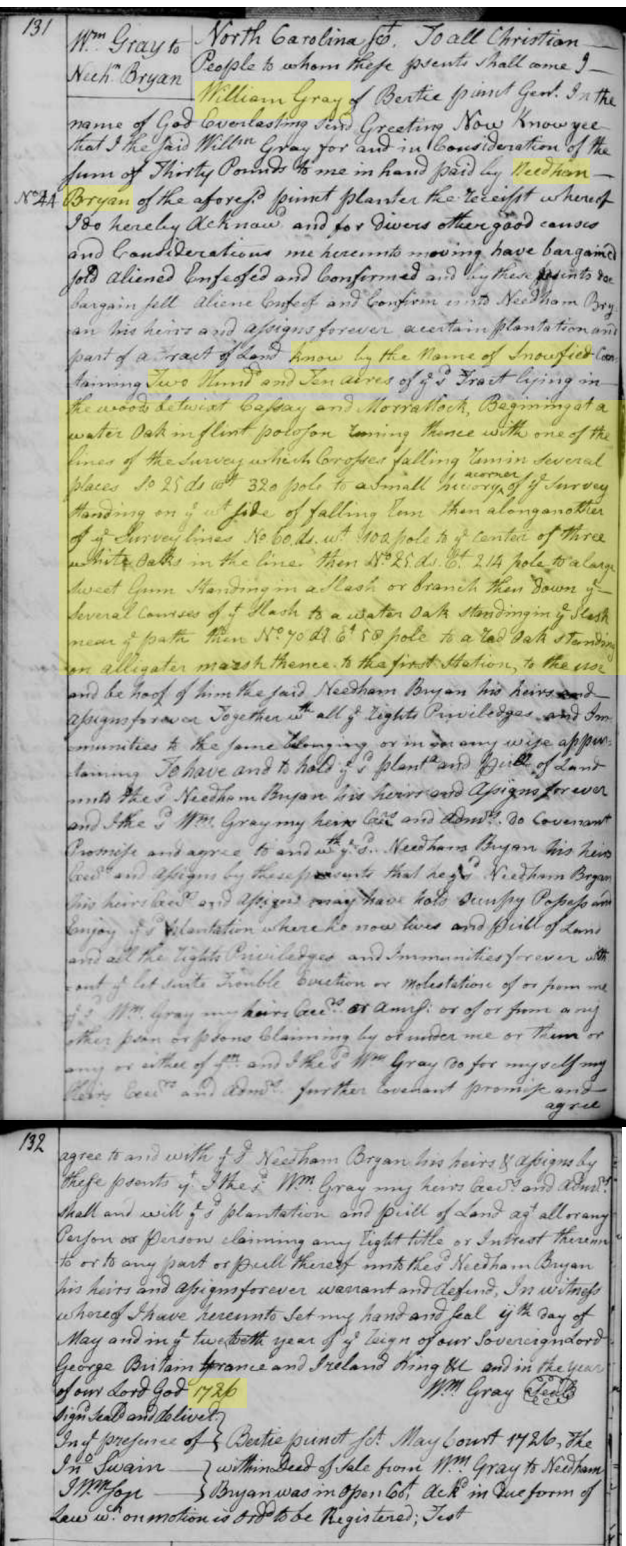 131
Wm Gray to
Needm Bryan
North Carolina Sct. To all Christian
People to whom these psents shall come I
William Gray of Bertie pcinct Gent. In the
name of God Everlasting Send Greeting Now Know yee
that I the said Willm Gray for and in Consideration of the
sum of Thirty Pounds to me in hand paid by Needham
No 44
Bryan of the aforesd pcinct planter the receipt whereof
I do hereby Acknow and for Divers other good causes
and Considerations me hereunto moving have bargained
sold aliened Enfeofed and Confirmed and by these psents doe
bargain sell aliene Enfeof and Confirm unto Needham Bry
an his heirs and assigns forever a certain plantation and
part of a Tract of Land know by the Name of Snowfied Con
taining Two Hundd and Ten acres of ye sd Tract lying in
the woods betwixt Cassay and Morrattock, Begining at a
water Oak in flint pocoson runing thence with one of the
lines of the Survey which Corosses falling runn in several
places So 25 ds wt 320 pole to a small hicory acorner of ye Survey
standing on ye wt side of falling run then along another
of ye Survey lines No 60 ds. wt. 100 pole to ye Center of three
white Oaks in the line then No 25 ds. Et 214 pole to a large
Sweet Gum Standing in a Slash or branch then down ye
several Courses of ye Slash to a water Oak standing in ye Slash
near ye path then No 70 ds Et 58 pole to a red Oak standing
on alligater marsh thence to the first Station, to the use
and be hoof of him the said Needham Bryan his heirs and
assigns forever Together wth all ye rights Priviledges and Im
munities to the same belonging or in any wise apper
taining To have and to hold ye sd planta and psell of Land
unto the sd Needham Bryan his heirs and Assigns for ever
and I the sd Wm Gray my heirs Exrs and Admrs. do Covenant
Promise and agree to and wth ye sd Needham Bryan his heirs
Exrs and assigns by these presents that he ye sd Needham Bryan
his heirs Exrs and Assigns may have hold ocupy Posess and
Enjoy ye sd plantation where he now lives and psell of Land
and all the rights Priviledges and Immunities for ever with
out ye let suite Trouble Eviction or Molestation of or from me
ye sd Wm Gray my heirs Exrs or Amrs: or of or from any
other pson or psons Claiming by or under me or them or
any or either of ym and I the sd Wm Gray do for myself my
Heirs Exrs and Admrs. further Covenant promise and
agree
132
agree to and with ye sd Needham Bryan his heirs & assigns by
these psents yt I the sd Wm Gray my heirs Exrs and Admrs
shall and will ye sd plantation and psell of Land agt all or any
Person or Person claiming any right title or Intrest therein
to or to any part or psell thereof unto the sd Needham Bryan
his heirs and assigns forever warrant and defend, In witness
whereof I have hereunto Set my hand and seal day of
May and in ye twelvth year of ye reign of our Sovereign Lord
George Britain France and Ireland King &c and in the year
of our Lord God 1726
Wm Gray Seal
Sign'd seald and deliver
In ye presence of
Jno Swain
Bertie pcinct Sct. May Court 1726, The
within Deed of Sale from Wm Gray to Needham
Bryan was in open Ct. Ackd in Due form of
Law wh. on motion is Ordd to be Registered; Test